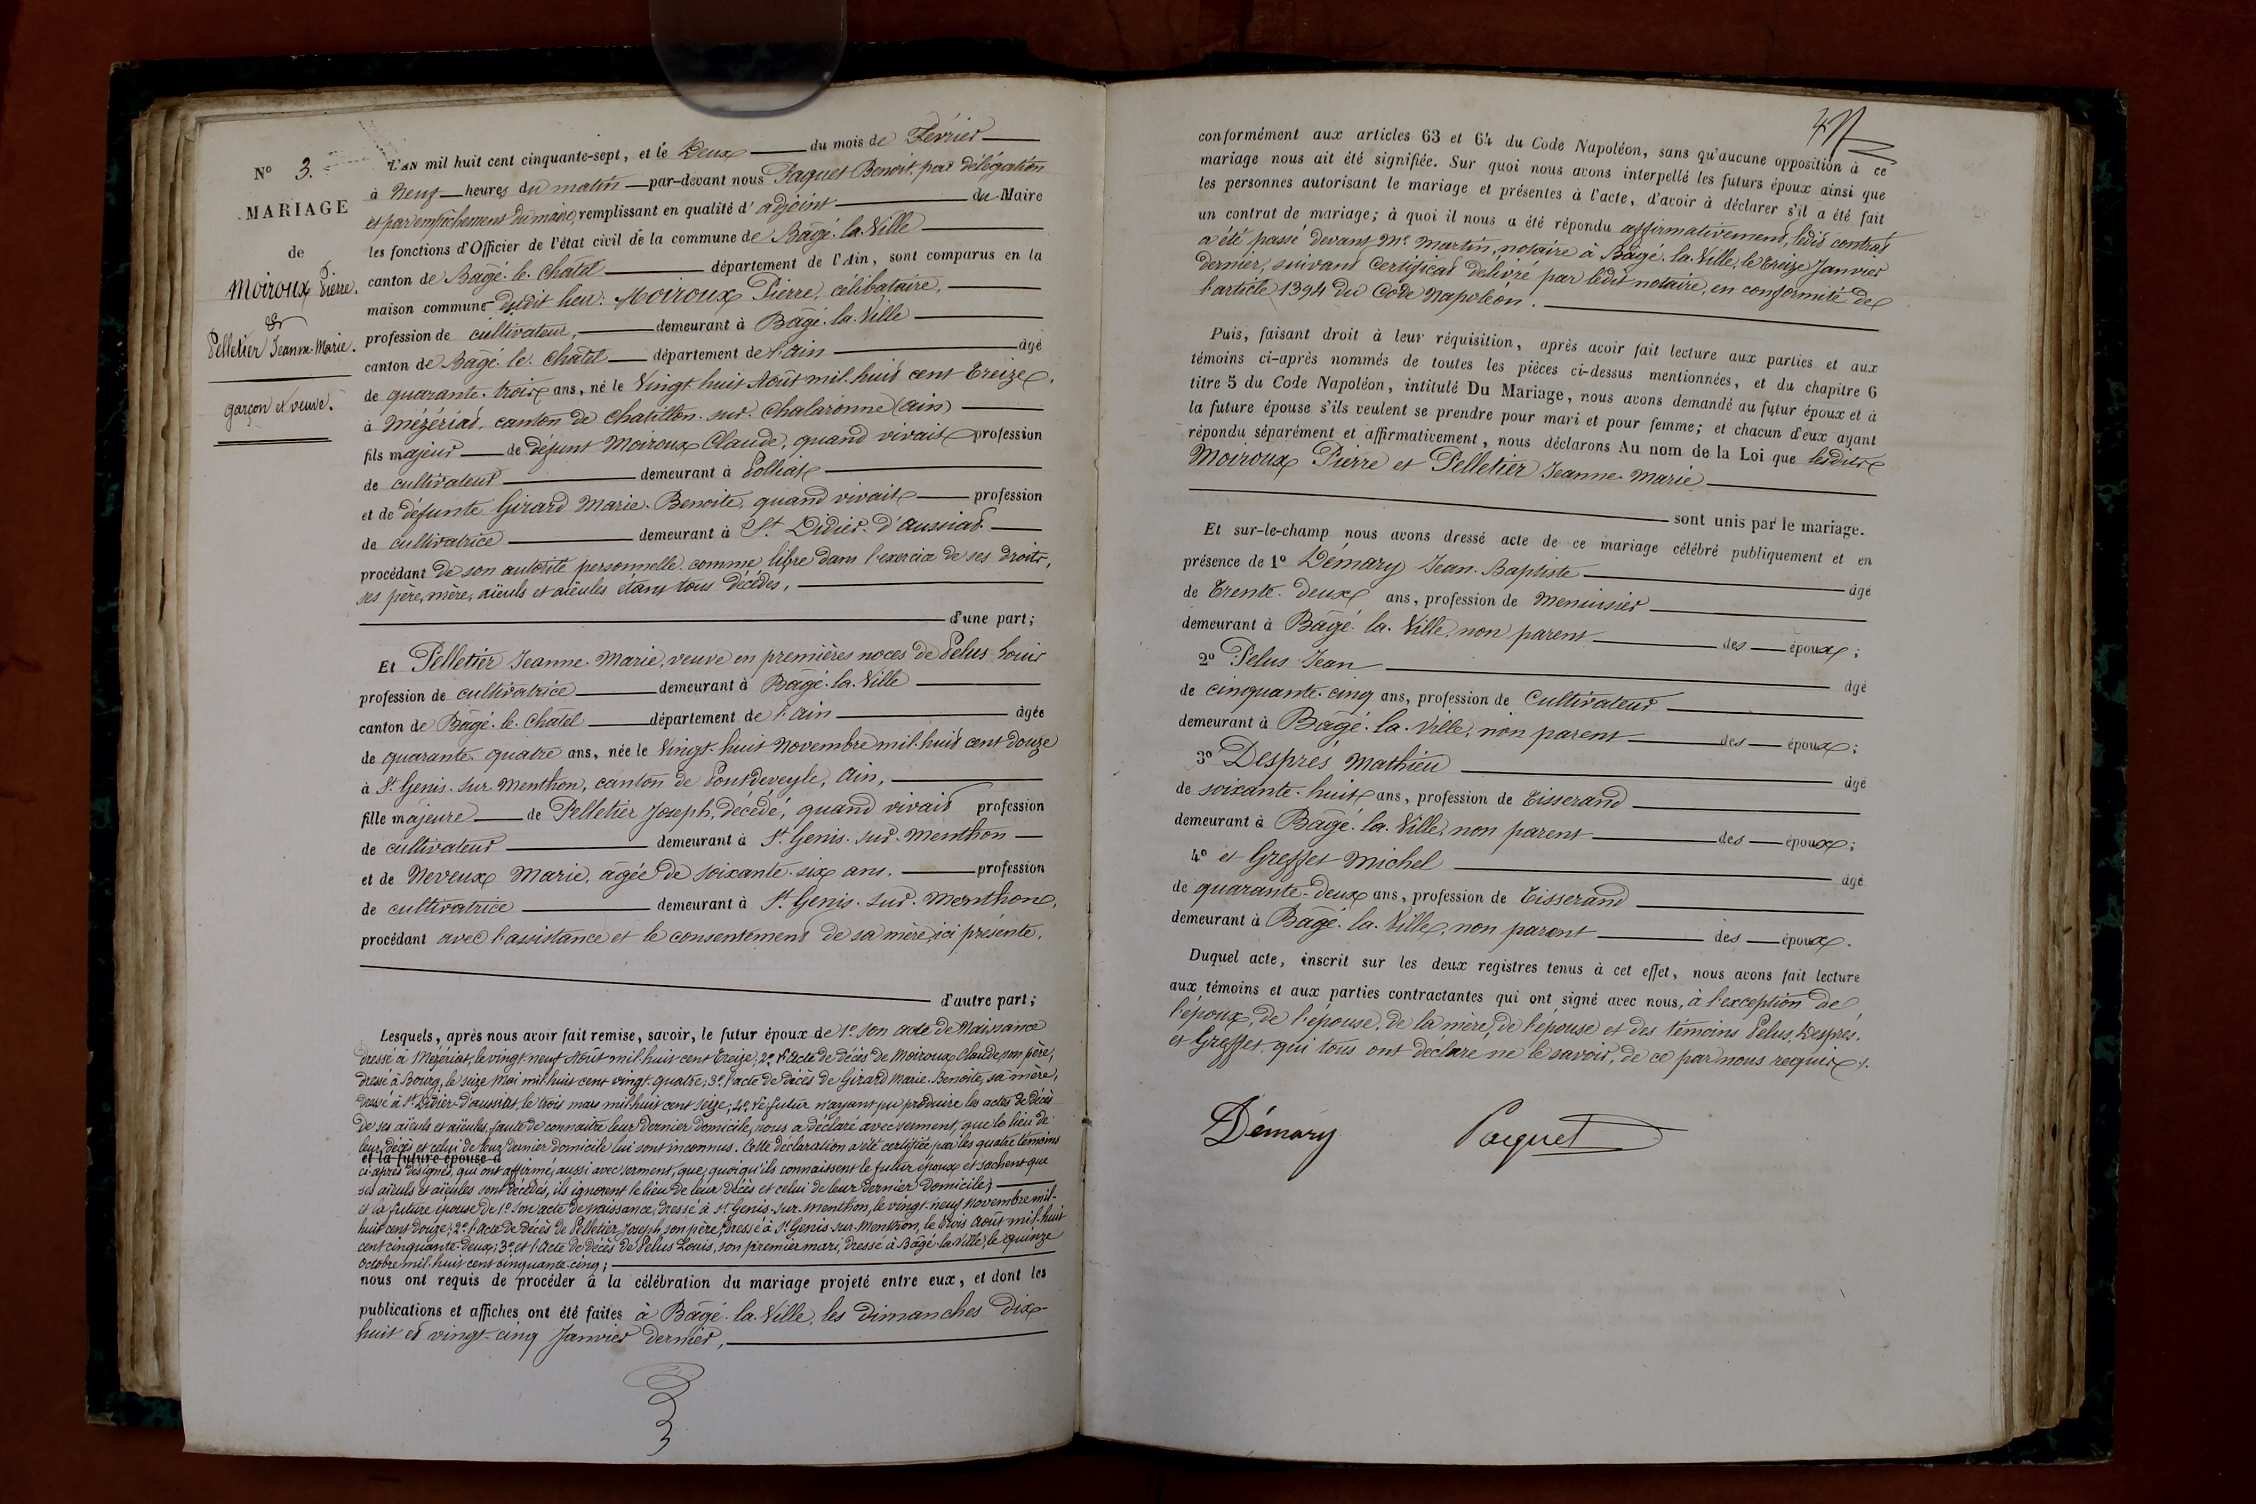 N° 3.
MARIAGE
de
Moiroux Pierre.
et
Pelletier Jeanne-Marie.
garçon et veuve.
L'AN mil huit cent cinquante-sept, et le Deux du mois de Février
à Neuf heures du matin par-devant nous Paquet Benoit, par délégation
et par empêchement du maire, remplissant en qualité d'adjoint du Maire
les fonctions d'Officier de l'état civil de la commune de Bâgé-la-Ville
canton de Bâgé-le-Châtel département de l'Ain, sont comparus en la
maison commune dudit lieu: Moiroux Pierre, célibataire,
profession de cultivateur, demeurant à Bâgé-la-Ville
canton de Bâgé-le-Châtel département de l'Ain âgé
de quarante-trois ans, né le Vingt huit Août mil-huit cent treize,
à Mézériat, canton de Chatillon-sur-Chalaronne (Ain)
fils majeur de défunt Moiroux Claude, quand vivait profession
de cultivateur demeurant à Polliat
et de défunte Girard Marie-Benoite, quand vivait profession
de cultivatrice demeurant à St Didier-d'Aussiat.
procédant de son autorité personnelle comme libre dans l'exercice de ses droits,
ses père, mère, aïeuls et aïeules étant tous décédés,
d'une part;
Et Pelletier Jeanne-Marie, veuve en premières noces de Pelus Louis
profession de cultivatrice demeurant à Bâgé-la-Ville
canton de Bâgé-le-Châtel département de l'Ain âgée
de quarante-quatre ans, née le Vingt-huit Novembre mil-huit cent douze
à St Genis-sur-Menthon, canton de Pontdeveyle, Ain,
fille majeure de Pelletier Joseph, décédé, quand vivait profession
de cultivateur demeurant à St Genis-sur-Menthon
et de Neveux Marie, âgée de soixante-six ans. profession
de cultivatrice demeurant à St Genis-sur-Menthon,
procédant avec l'assistance et le consentement de sa mère, ici présente,
d'autre part;
Lesquels, après nous avoir fait remise, savoir, le futur époux de 1° son acte de Naissance
dressé à Mézériat, le vingt neuf Août mil-huit cent treize; 2° l'acte de décès de Moiroux Claude, son père,
dressé à Bourg, le seize Mai mil huit cent vingt-quatre; 3° l'acte de décès de Girard Marie-Benoite, sa mère,
dressé à St Didier-d'aussiat, le trois mars mil-huit cent seize; 4° le futur n'ayant pu produire les actes de décès
de ses aïeuls et aïeules, faute de connaitre leur dernier domicile, nous a déclaré avec serment, que le lieu de
leur décès et celui de leur dernier domicile lui sont inconnus. Cette déclaration a été certifiée, par les quatre témoins
et la future épouse d
ci-après désignés, qui ont affirmé, aussi avec serment, que, quoiqu'ils connaissent le futur époux et sachent que
ses aïeuls et aïeules sont décédés, ils ignorent le lieu de leur décès et celui de leur dernier domicile;
et la future épouse de 1° son acte de naissance, dressé à St Genis-sur-Menthon, le vingt-neuf novembre mil-
huit cent douze; 2° l'acte de décès de Pelletier Joseph, son père, dressé à St Genis-sur-Menthon, le trois Août mil-huit
cent cinquante-deux; 3° et l'acte de décès de Pelus Louis, son premier mari, dressé à Bâgé-la-Ville, le quinze
octobre mil-huit cent cinquante-cinq;
nous ont requis de procéder à la célébration du mariage projeté entre eux, et dont les
publications et affiches ont été faites à Bâgé-la-Ville, les dimanches dix-
huit et vingt-cinq Janvier dernier,
conformément aux articles 63 et 64 du Code Napoléon, sans qu'aucune opposition à ce
mariage nous ait été signifiée. Sur quoi nous avons interpellé les futurs époux ainsi que
les personnes autorisant le mariage et présentes à l'acte, d'avoir à déclarer s'il a été fait
un contrat de mariage; à quoi il nous a été répondu affirmativement, ledit contrat
a été passé devant Me Martin, notaire à Bâgé-la-Ville, le treize Janvier
dernier, suivant certificat délivré par ledit notaire, en conformité de
l'article 1394 du Code Napoléon.
Puis, faisant droit à leur réquisition, après avoir fait lecture aux parties et aux
témoins ci-après nommés de toutes les pièces ci-dessus mentionnées, et du chapitre 6
titre 5 du Code Napoléon, intitulé Du Mariage, nous avons demandé au futur époux et à
la future épouse s'ils veulent se prendre pour mari et pour femme; et chacun d'eux ayant
répondu séparément et affirmativement, nous déclarons Au nom de la Loi que lesdits
Moiroux Pierre et Pelletier Jeanne-Marie
sont unis par le mariage.
Et sur-le-champ nous avons dressé acte de ce mariage célébré publiquement et en
présence de 1° Démary Jean-Baptiste âgé
de trente-deux ans, profession de menuisier
demeurant à Bâgé-la-Ville, non parent des époux;
2° Pelus Jean âgé
de cinquante-cinq ans, profession de Cultivateur
demeurant à Bâgé-la-Ville, non parent des époux;
3° Després Mathieu âgé
de soixante-huit ans, profession de Tisserand
demeurant à Bâgé-la-Ville, non parent des époux;
4° et Greffet Michel âgé
de quarante-deux ans, profession de Tisserand
demeurant à Bâgé-la-Ville, non parent des époux.
Duquel acte, inscrit sur les deux registres tenus à cet effet, nous avons fait lecture
aux témoins et aux parties contractantes qui ont signé avec nous, à l'exception de
l'époux, de l'épouse, de la mère de l'épouse et des témoins Pelus, Després,
et Greffet, qui tous ont déclaré ne le savoir, de ce par nous requis.
Démary Paquet